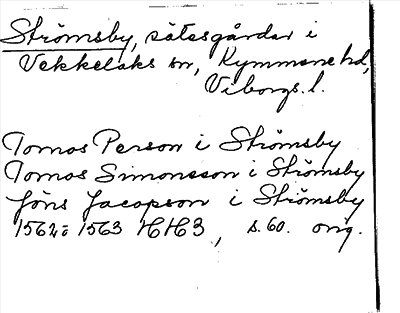 Strömsby, sätesgårdar i
Vekkelaks sn, Kymmene hd,
Viborgs l.
Tomos Person i Strömsby
Tomos Simonsson i Strömsby
Jöns Jacopson i Strömsby
1562 o 1563 HH3, s. 60. orig.